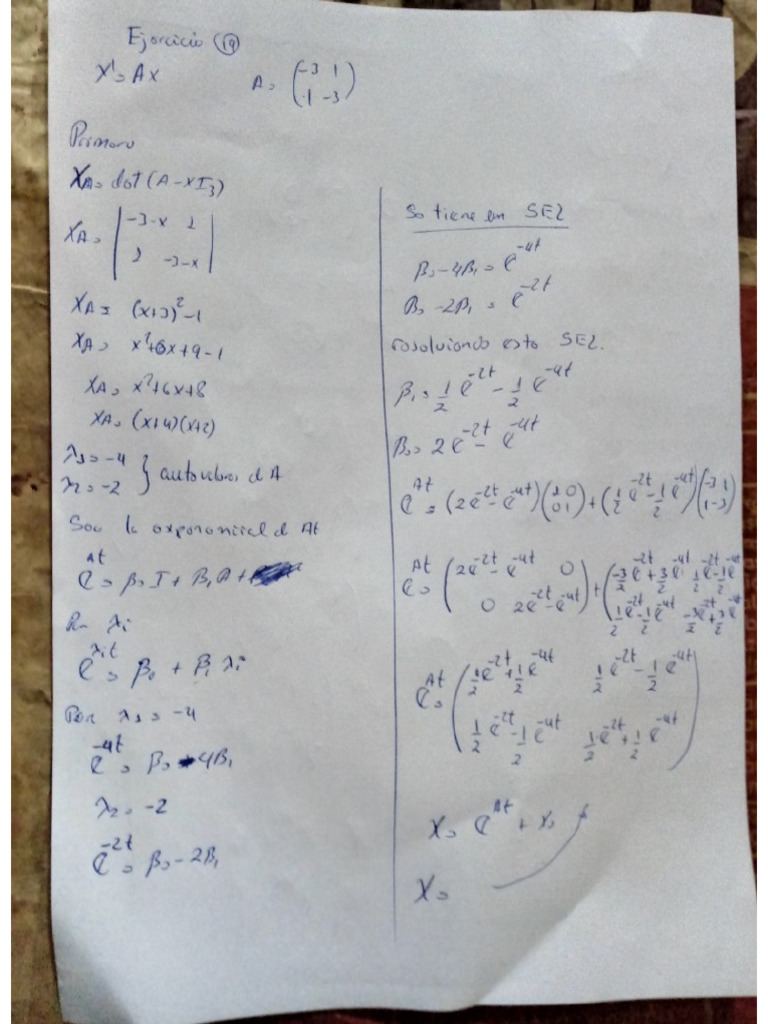 Ejercicio 19
X' = Ax A = (-3 1
1 -3)
Primero
X_A = det(A - xI_3)
X_A = | -3-x 1
1 -3-x |
X_A = (x+3)² - 1
X_A = x²+6x+9-1
X_A = x²+6x+8
X_A = (x+4)(x+2)
λ1 = -4
λ2 = -2 } autovalores d A
Sea la exponencial d At
e^At = β0 I + β1 A +
Para λi
e^λit = β0 + β1 λi
Para λ1 = -4
e^-4t = β0 - 4β1
λ2 = -2
e^-2t = β0 - 2β1
Se tiene un SEL
β0 - 4β1 = e^-4t
β0 - 2β1 = e^-2t
resolviendo este SEL.
β1 = 1/2 e^-2t - 1/2 e^-4t
β0 = 2e^-2t - e^-4t
e^At = (2e^-2t - e^-4t)(1 0
0 1) + (1/2 e^-2t - 1/2 e^-4t)(-3 1
1 -3)
e^At = (2e^-2t - e^-4t 0
0 2e^-2t - e^-4t) + (-3/2 e^-2t + 3/2 e^-4t 1/2 e^-2t - 1/2 e^-4t
1/2 e^-2t - 1/2 e^-4t -3/2 e^-2t + 3/2 e^-4t)
e^At = (1/2 e^-2t + 1/2 e^-4t 1/2 e^-2t - 1/2 e^-4t
1/2 e^-2t - 1/2 e^-4t 1/2 e^-2t + 1/2 e^-4t)
X = e^At + X0
X =